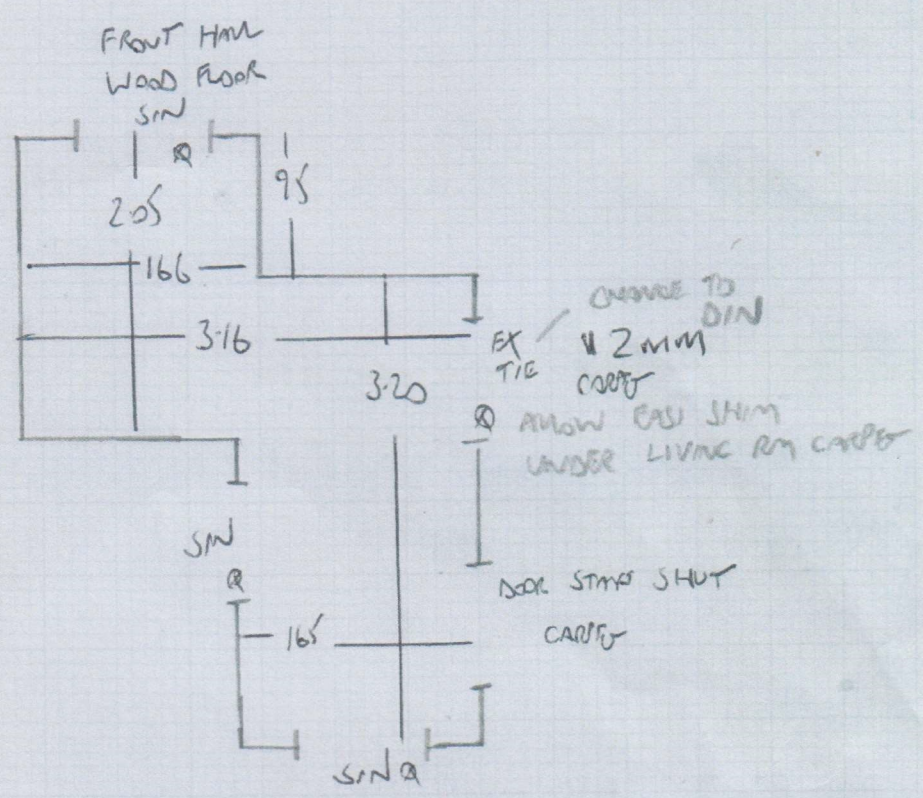 FRONT HALL
WOOD FLOOR
SIN
Q
95
2.05
166
3.16
EX
TIE
CHANGE TO
DIN
2mm
3.20
Q
ALLOW EASI SHIM
UNDER LIVING RM CARPET
SIN
Q
DOOR STAYS SHUT
165
SIN Q